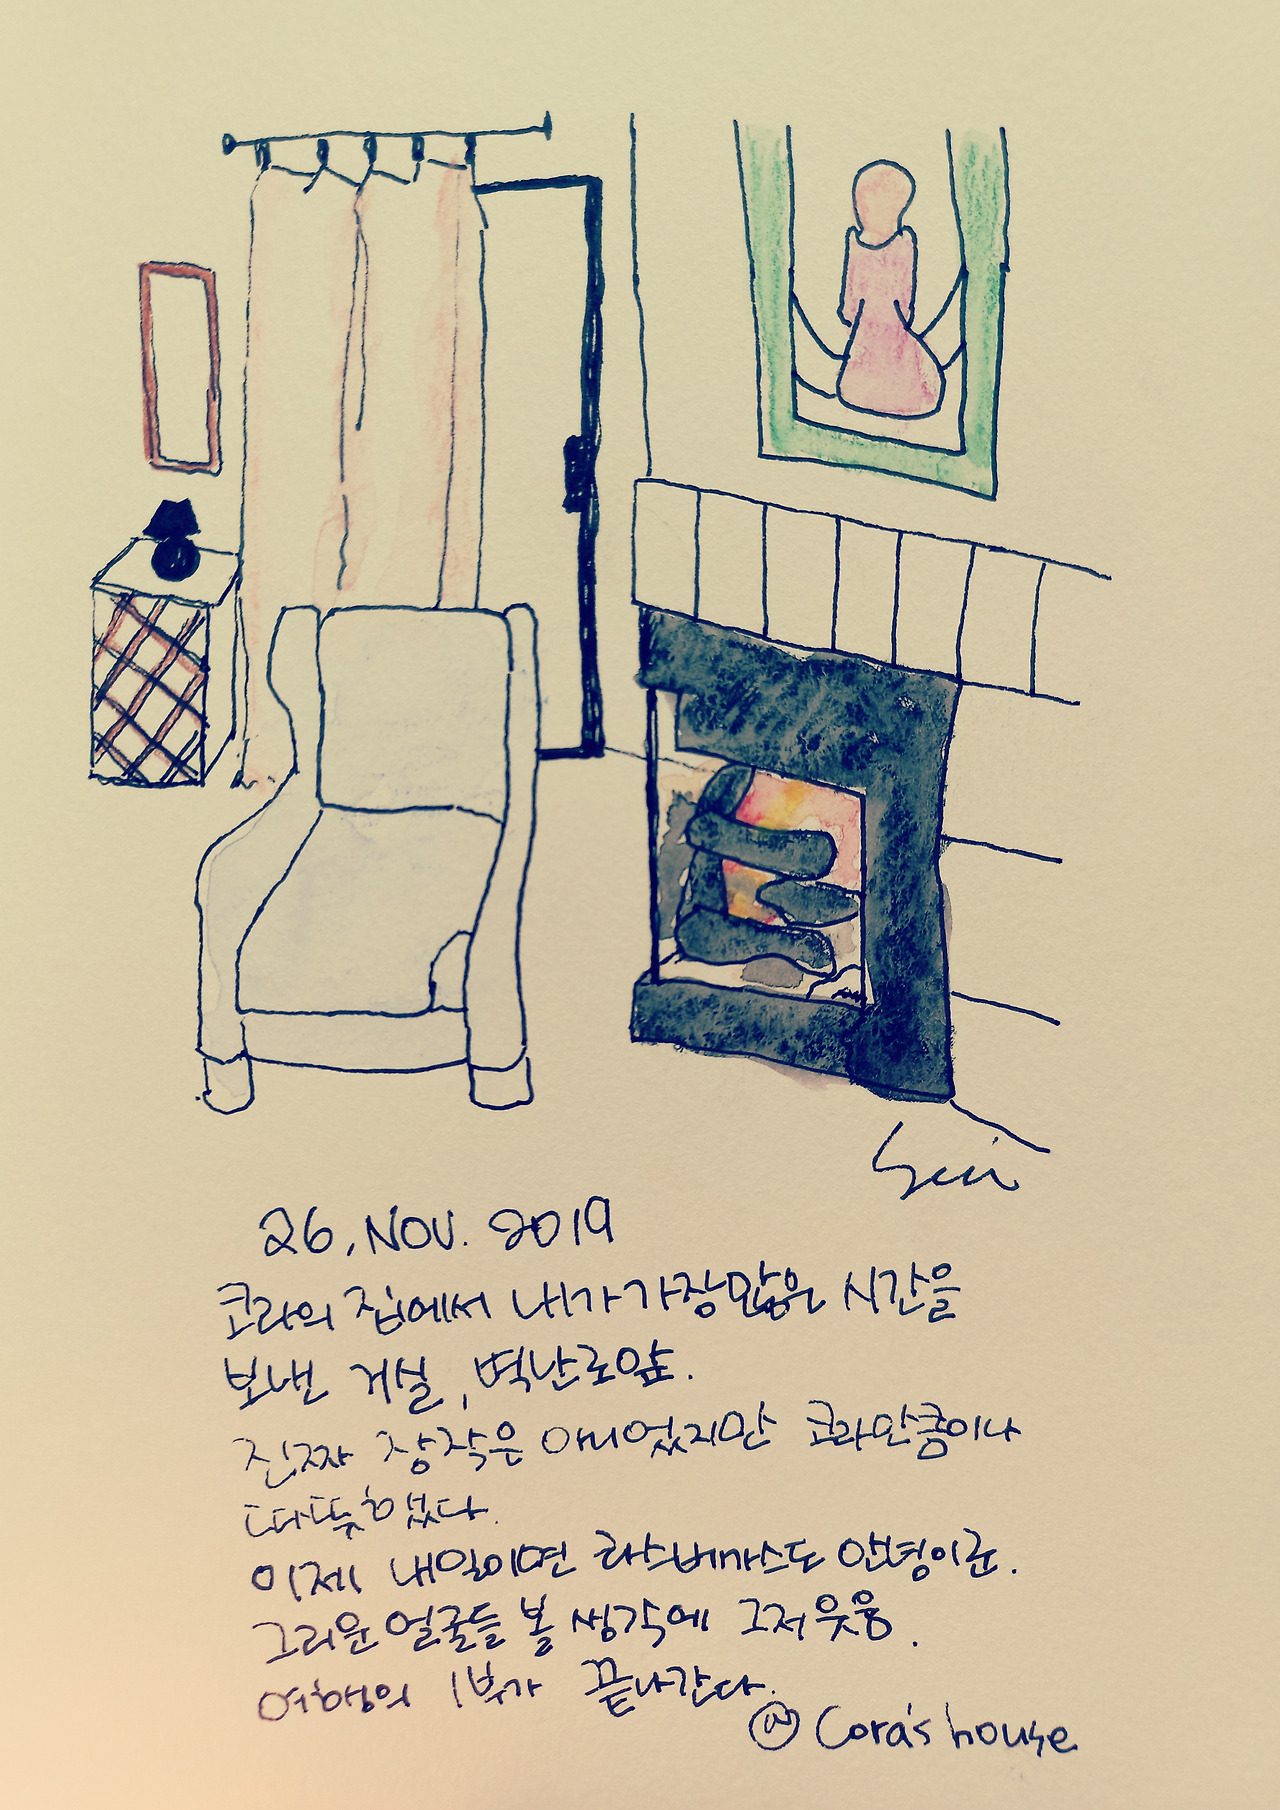 26. NOV. 2019
코라의 집에서 내가 가장 많은 시간을
보낸 거실, 벽난로앞.
진짜 장작은 아니었지만 코라만큼이나
따뜻했다.
이제 내일이면 라스베가스도 안녕이군.
그리운 얼굴들 볼 생각에 그저 웃음.
여행의 1부가 끝나간다.
@ Cora's house